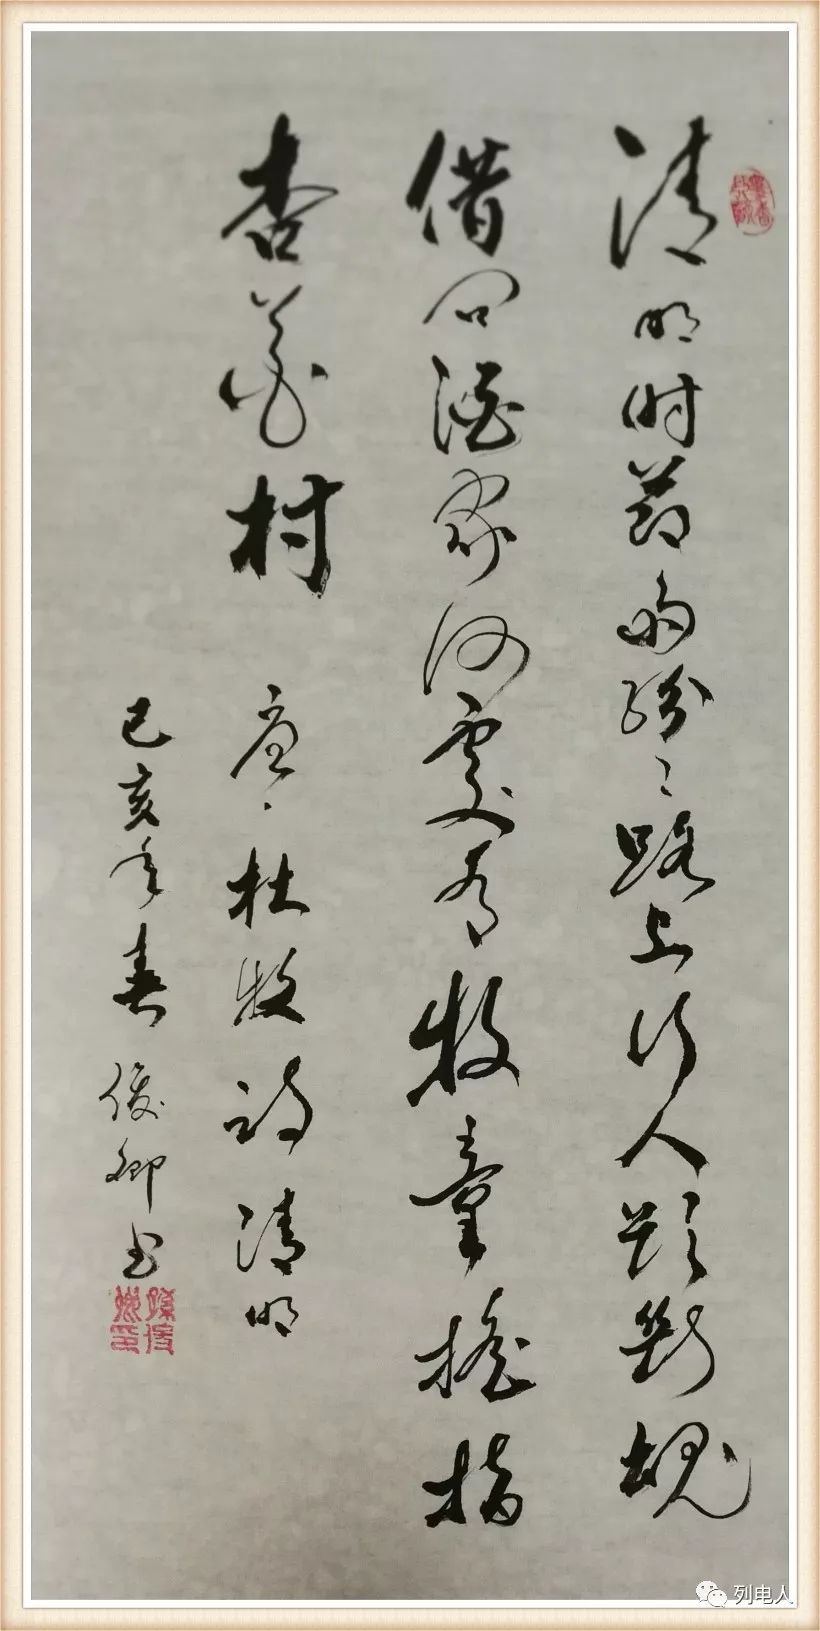 清明时節雨紛々路上行人欲斷魂
借问酒家何處有牧童搖指
杏花村 唐、杜牧诗清明
己亥年春 俊卿书
列电人